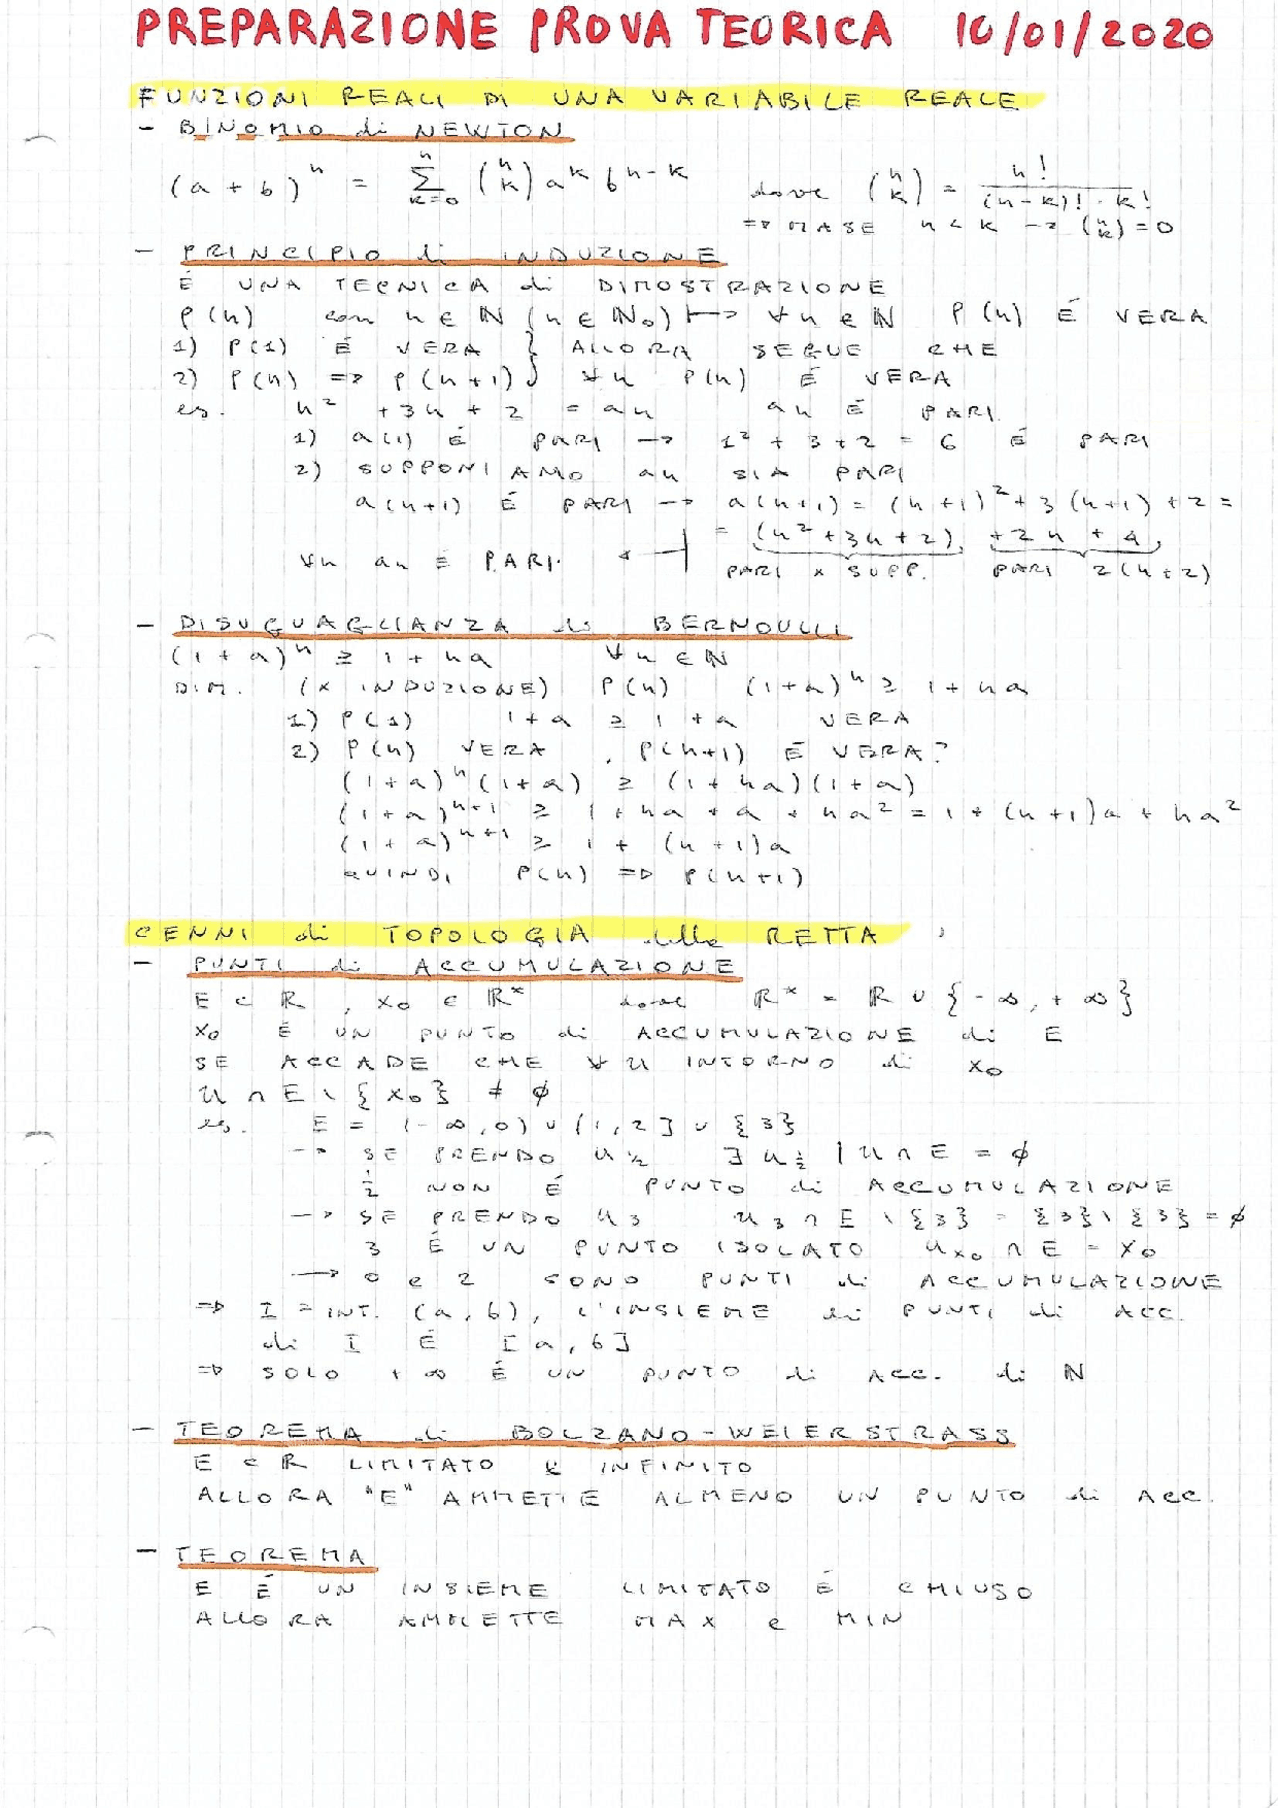 PREPARAZIONE PROVA TEORICA 10/01/2020
FUNZIONI REALI DI UNA VARIABILE REALE
- BINOMIO di NEWTON
(a + b)^n = Σ_{k=0}^{n} (n k) a^k b^{n-k} dove (n k) = n! / (n-k)! · k!
=> MA SE n < k -> (n k) = 0
- PRINCIPIO di INDUZIONE
É UNA TECNICA di DIMOSTRAZIONE
P(n) con n ∈ ℕ (n ∈ ℕ₀) ↦ ∀n ∈ ℕ P(n) É VERA
1) P(1) É VERA } ALLORA SEGUE CHE
2) P(n) => P(n+1) } ∀n P(n) É VERA
es. n² + 3n + 2 = an an É PARI.
1) a(1) É PARI -> 1² + 3 + 2 = 6 É PARI
2) SUPPONIAMO an SIA PARI
a(n+1) É PARI -> a(n+1) = (n+1)² + 3(n+1) + 2 =
= (n² + 3n + 2) + 2n + 4
∀n an É PARI. PARI x SUPP. PARI 2(n+2)
- DISUGUAGLIANZA di BERNOULLI
(1 + a)^n ≥ 1 + na ∀n ∈ ℕ
DIM. (x INDUZIONE) P(n) (1+a)^n ≥ 1 + na
1) P(1) 1 + a ≥ 1 + a VERA
2) P(n) VERA , P(n+1) É VERA?
(1+a)^n (1+a) ≥ (1 + na)(1+a)
(1+a)^{n+1} ≥ 1 + na + a + na² = 1 + (n+1)a + na²
(1+a)^{n+1} ≥ 1 + (n+1)a
QUINDI P(n) => P(n+1)
CENNI di TOPOLOGIA della RETTA
- PUNTI di ACCUMULAZIONE
E ⊂ ℝ , x₀ ∈ ℝ* dove ℝ* = ℝ ∪ {-∞, +∞}
x₀ É UN PUNTO di ACCUMULAZIONE di E
SE ACCADE CHE ∀ U INTORNO di x₀
U ∩ E \ {x₀} ≠ ∅
es. E = (-∞, 0) ∪ (1, 2] ∪ {3}
-> SE PRENDO U½ ∃ U½ | U ∩ E = ∅
½ NON É PUNTO di ACCUMULAZIONE
-> SE PRENDO U₃ U₃ ∩ E \ {3} = {3} \ {3} = ∅
3 É UN PUNTO ISOLATO U_{x₀} ∩ E = x₀
-> 0 e 2 SONO PUNTI di ACCUMULAZIONE
=> I = INT. (a, b), L'INSIEME di PUNTI di ACC.
di I É [a, b]
=> SOLO +∞ É UN PUNTO di ACC. di ℕ
- TEOREMA di BOLZANO-WEIERSTRASS
E ⊂ ℝ LIMITATO E INFINITO
ALLORA "E" AMMETTE ALMENO UN PUNTO di ACC.
- TEOREMA
E É UN INSIEME LIMITATO É CHIUSO
ALLORA AMMETTE MAX e MIN